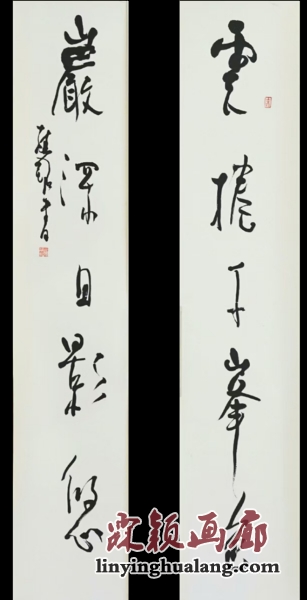 雲捲千峯
巖深日影悠
霖颖画廊
linyinghualang.com